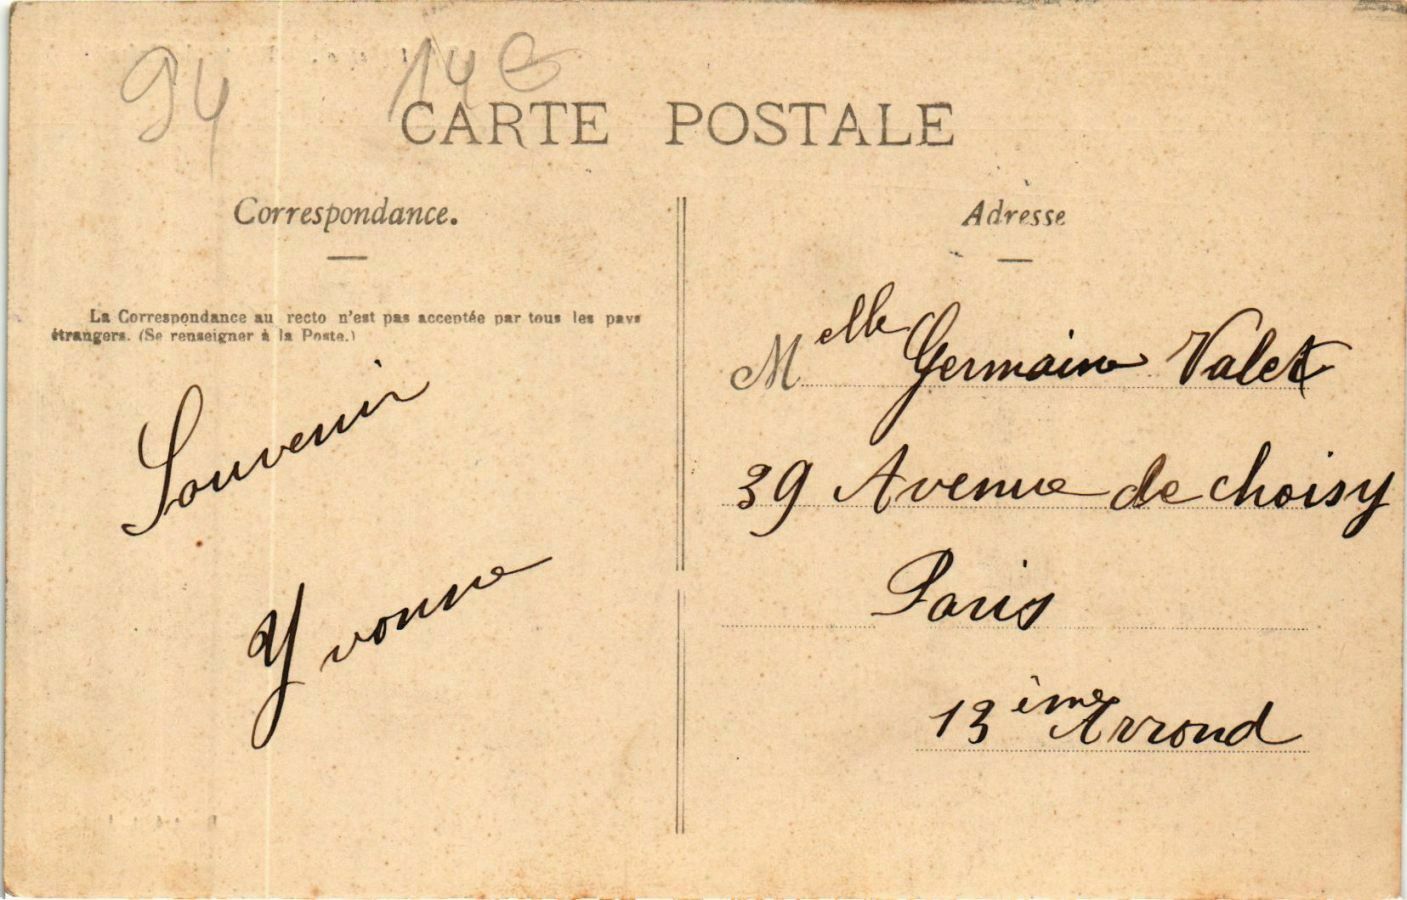 94
14
CARTE POSTALE
Correspondance.
La Correspondance au recto n'est pas acceptée par tous les pays
étrangers. (Se renseigner à la Poste.)
Souvenir
Yvonne
Adresse
Melle Germaine Valet
39 Avenue de choisy
Paris
13ème Arrond